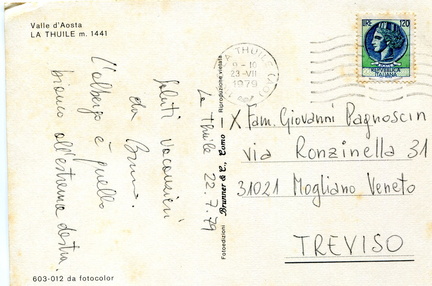 Valle d'Aosta
LA THUILE m. 1441
La Thuile 22.7.79
Saluti vacanzieri
da Bruno
L'albergo è quello
bianco all'estrema destra.
603-012 da fotocolor
Fotoedizioni Brunner & C., Como - Riproduzione vietata
LA THUILE
23-VII
1979
LIRE 120
REPUBBLICA
ITALIANA
Fam. Giovanni Pagnoscin
via Ronzinella 31
31021 Mogliano Veneto
TREVISO